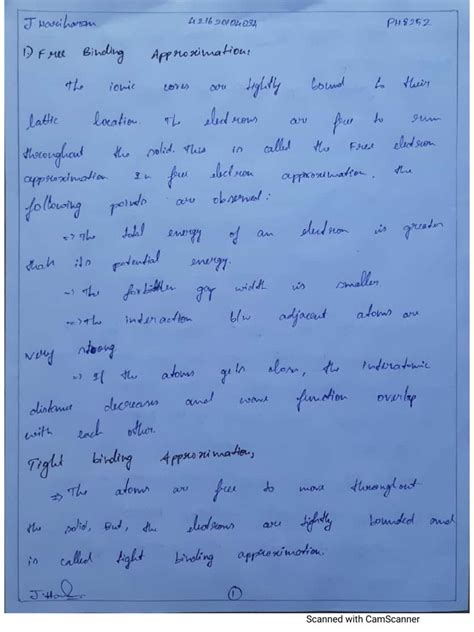 J Hariharan 421620104034 PH8252
1) Free Binding Approximation:
The ionic cores are tightly bound to their
lattic location. The electrons are free to run
throughout the solid. This is called the Free electron
approximation In free electron approximation, the
following points are observed:
=> The total energy of an electron is greater
than its potential energy.
-> The forbidden gap width is smaller
-> The interaction b/w adjacent atoms are
very strong
=> If the atoms gets close, the interatomic
distance decreases and wave function overlap
with each other.
Tight binding Approximation,
=> The atoms are free to move throughout
the solid, But, the electrons are tightly bounded and
is called tight binding approximation.
1
Scanned with CamScanner